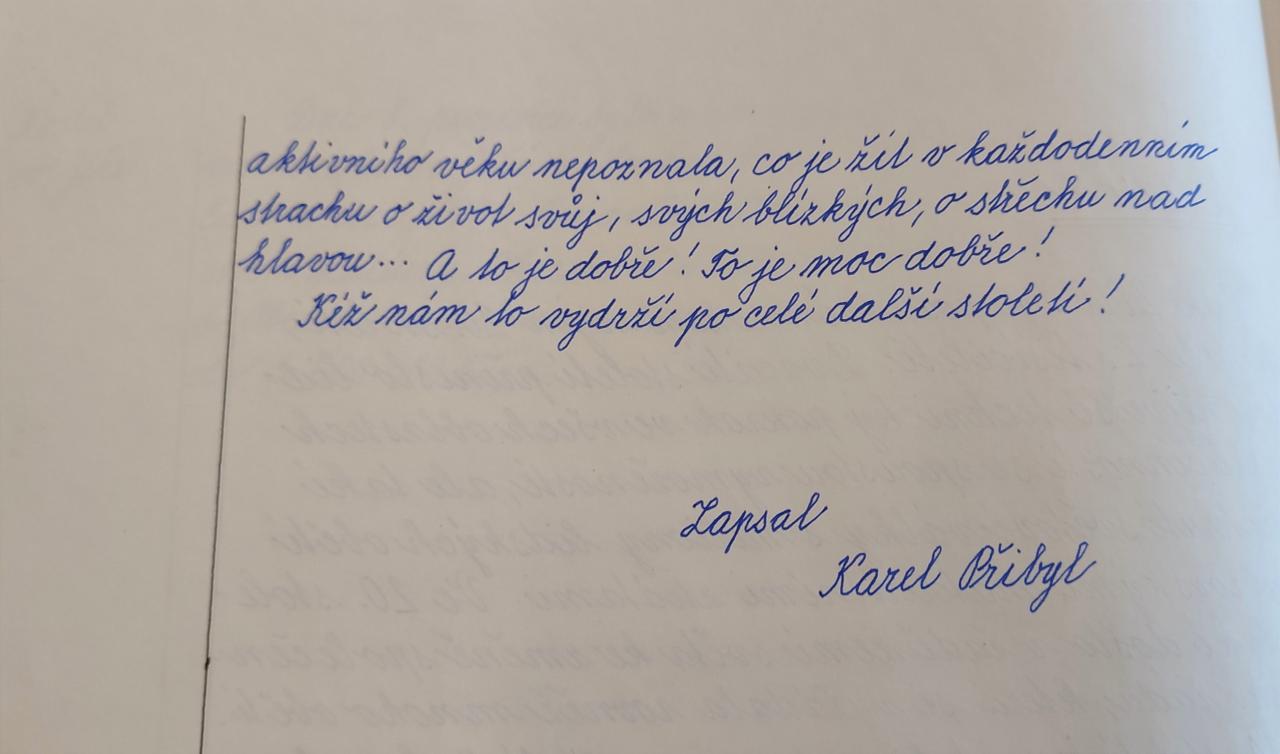 aktivního věku nepoznala, co je žít v každodenním
strachu o život svůj, svých blízkých, o střechu nad
hlavou... A to je dobře! To je moc dobře!
Kéž nám to vydrží po celé další století!
Zapsal
Karel Přibyl